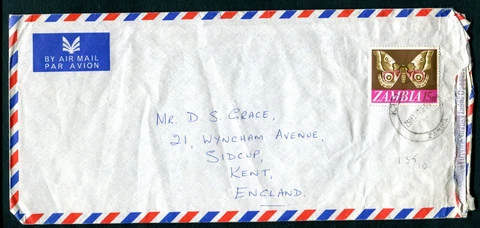 BY AIR MAIL
PAR AVION
ZAMBIA
MR. D. S. GRACE,
21, WYNCHAM AVENUE,
SIDCUP,
KENT,
ENGLAND.